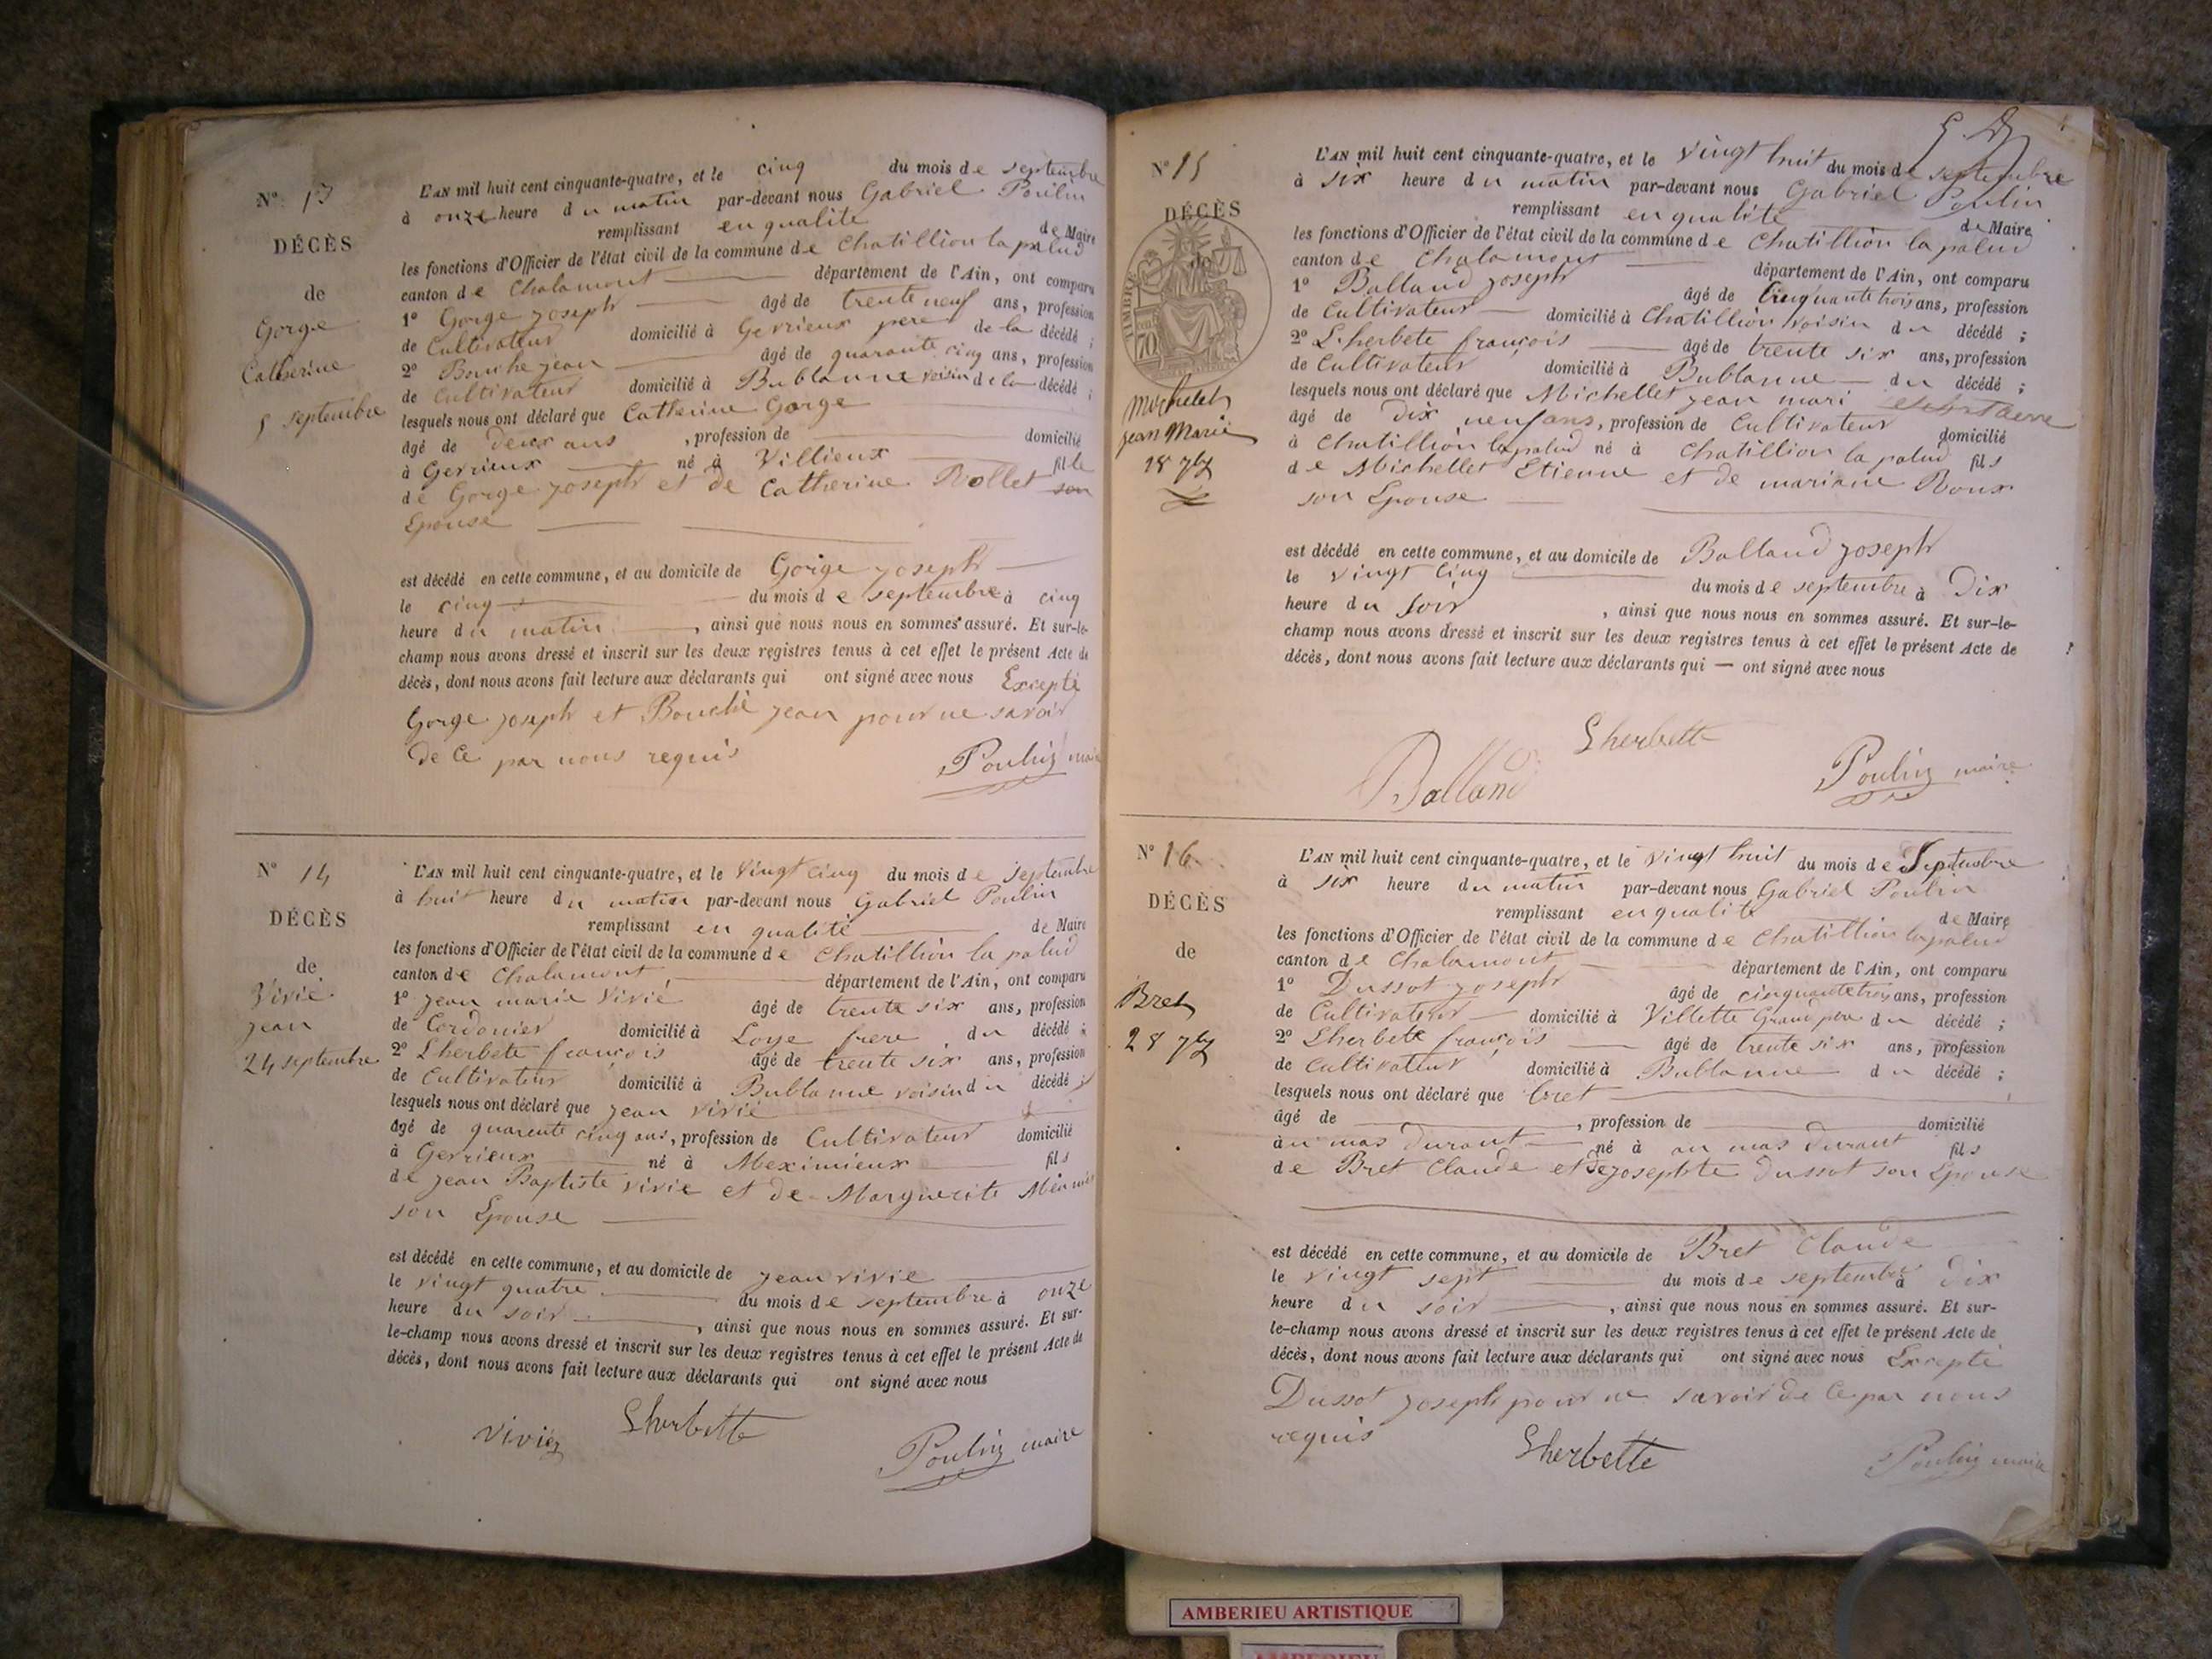 Nº 13
DÉCÈS
de
Gorge
Catherine
5 septembre
L'AN mil huit cent cinquante-quatre, et le cinq du mois de septembre
à onze heure du matin par-devant nous Gabriel Poulin
remplissant en qualité de Maire
les fonctions d'Officier de l'état civil de la commune de Chatillion la palud
canton de Chalamont département de l'Ain, ont comparu
1º Gorge joseph âgé de trente neuf ans, profession
de Cultivateur domicilié à Gevrieux pere de la décédé ;
2º Bouche jean âgé de quarante cinq ans, profession
de Cultivateur domicilié à Bublanne voisin de la décédé ;
lesquels nous ont déclaré que Catherine Gorge
âgé de deux ans , profession de domicilié
à Gevrieux né à Villieux fille
de Gorge joseph et de Catherine Rollet son
Epouse
est décédé en cette commune, et au domicile de Gorge joseph
le cinq du mois de septembre à cinq
heure du matin , ainsi que nous nous en sommes assuré. Et sur-le-
champ nous avons dressé et inscrit sur les deux registres tenus à cet effet le présent Acte de
décès, dont nous avons fait lecture aux déclarants qui ont signé avec nous Excepté
Gorge joseph et Bouché jean pour ne savoir
de Ce par nous requis
Poulin maire
Nº 14
DÉCÈS
de
Vivié
jean
24 septembre
L'AN mil huit cent cinquante-quatre, et le vingt cinq du mois de septembre
à huit heure du matin par-devant nous Gabriel Poulin
remplissant en qualité de Maire
les fonctions d'Officier de l'état civil de la commune de Chatillion la palud
canton de Chalamont département de l'Ain, ont comparu
1º jean marie Vivié âgé de trente six ans, profession
de Cordonier domicilié à Loye frere du décédé ;
2º Lherbete françois âgé de trente six ans, profession
de Cultivateur domicilié à Bublanne voisin du décédé ;
lesquels nous ont déclaré que jean vivié
âgé de quarente cinq ans, profession de Cultivateur domicilié
à Gevrieux né à Meximieux fils
de jean Baptiste vivie et de Marguerite
son Epouse
est décédé en cette commune, et au domicile de jean vivie
le vingt quatre du mois de septembre à onze
heure du soir , ainsi que nous nous en sommes assuré. Et sur-
le-champ nous avons dressé et inscrit sur les deux registres tenus à cet effet le présent Acte de
décès, dont nous avons fait lecture aux déclarants qui ont signé avec nous
Vivié Lherbette
Poulin maire
Nº 15
DÉCÈS
TIMBRE
70
michelet
jean Marie
28 7bre
L'AN mil huit cent cinquante-quatre, et le vingt huit du mois de septembre
à six heure du matin par-devant nous Gabriel Poulin
remplissant en qualité de Maire
les fonctions d'Officier de l'état civil de la commune de Chatillion la palud
canton de Chalamont département de l'Ain, ont comparu
1º Balland joseph âgé de Cinquante trois ans, profession
de Cultivateur domicilié à Chatillion voisin du décédé ;
2º Lherbete françois âgé de trente six ans, profession
de Cultivateur domicilié à Bublanne du décédé ;
lesquels nous ont déclaré que Michellet jean mari
âgé de dix neuf ans, profession de Cultivateur domicilié
à Chatillion la palud né à Chatillion la palud fils
de Michellet Etienne et de mariane Roux
son Epouse
est décédé en cette commune, et au domicile de Balland joseph
le vingt cinq du mois de septembre à Dix
heure du soir , ainsi que nous nous en sommes assuré. Et sur-le-
champ nous avons dressé et inscrit sur les deux registres tenus à cet effet le présent Acte de
décès, dont nous avons fait lecture aux déclarants qui — ont signé avec nous
Lherbette
Balland Poulin maire
Nº 16
DÉCÈS
de
Bret
28 7bre
L'AN mil huit cent cinquante-quatre, et le vingt huit du mois de Septembre
à six heure du matin par-devant nous Gabriel Poulin
remplissant en qualité de Maire
les fonctions d'Officier de l'état civil de la commune de Chatillion la palud
canton de Chalamont département de l'Ain, ont comparu
1º Dussot joseph âgé de cinquante trois ans, profession
de Cultivateur domicilié à Villette Grand pere du décédé ;
2º Lherbete françois âgé de trente six ans, profession
de Cultivateur domicilié à Bublanne du décédé ;
lesquels nous ont déclaré que bret
âgé de , profession de domicilié
à au mas durant né à au mas durant fils
de Bret Claude et de josephte Dussot son Epouse
est décédé en cette commune, et au domicile de Bret Claude
le vingt sept du mois de septembre à dix
heure du soir , ainsi que nous nous en sommes assuré. Et sur-
le-champ nous avons dressé et inscrit sur les deux registres tenus à cet effet le présent Acte de
décès, dont nous avons fait lecture aux déclarants qui ont signé avec nous Excepté
Dussot joseph pour ne savoir de Ce par nous
requis
Lherbette Poulin maire
AMBERIEU ARTISTIQUE
AMBERIEU